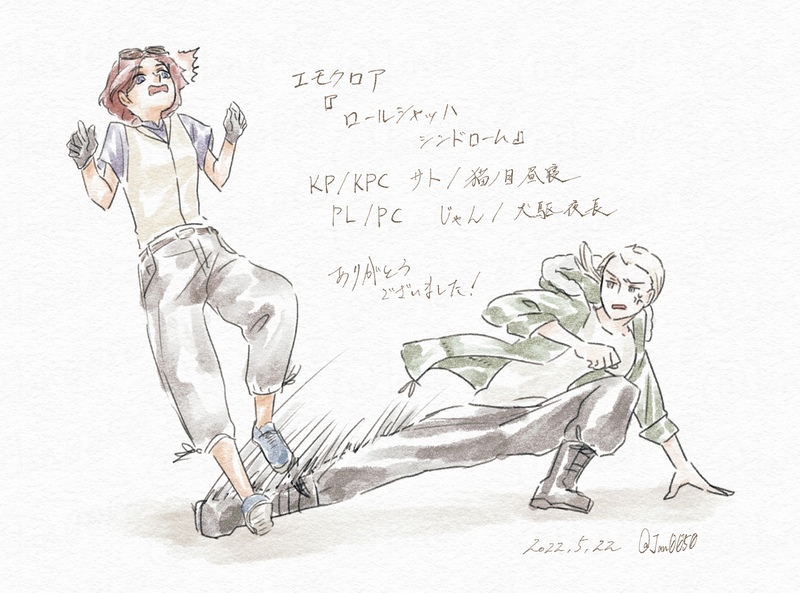 エモクロア
『ロールシャッハ
シンドローム』
KP/KPC サト/猫ノ目昼寝
PL/PC じゃん/犬駆夜長
ありがとう
ございました!
2022.5.22 @Jan0650